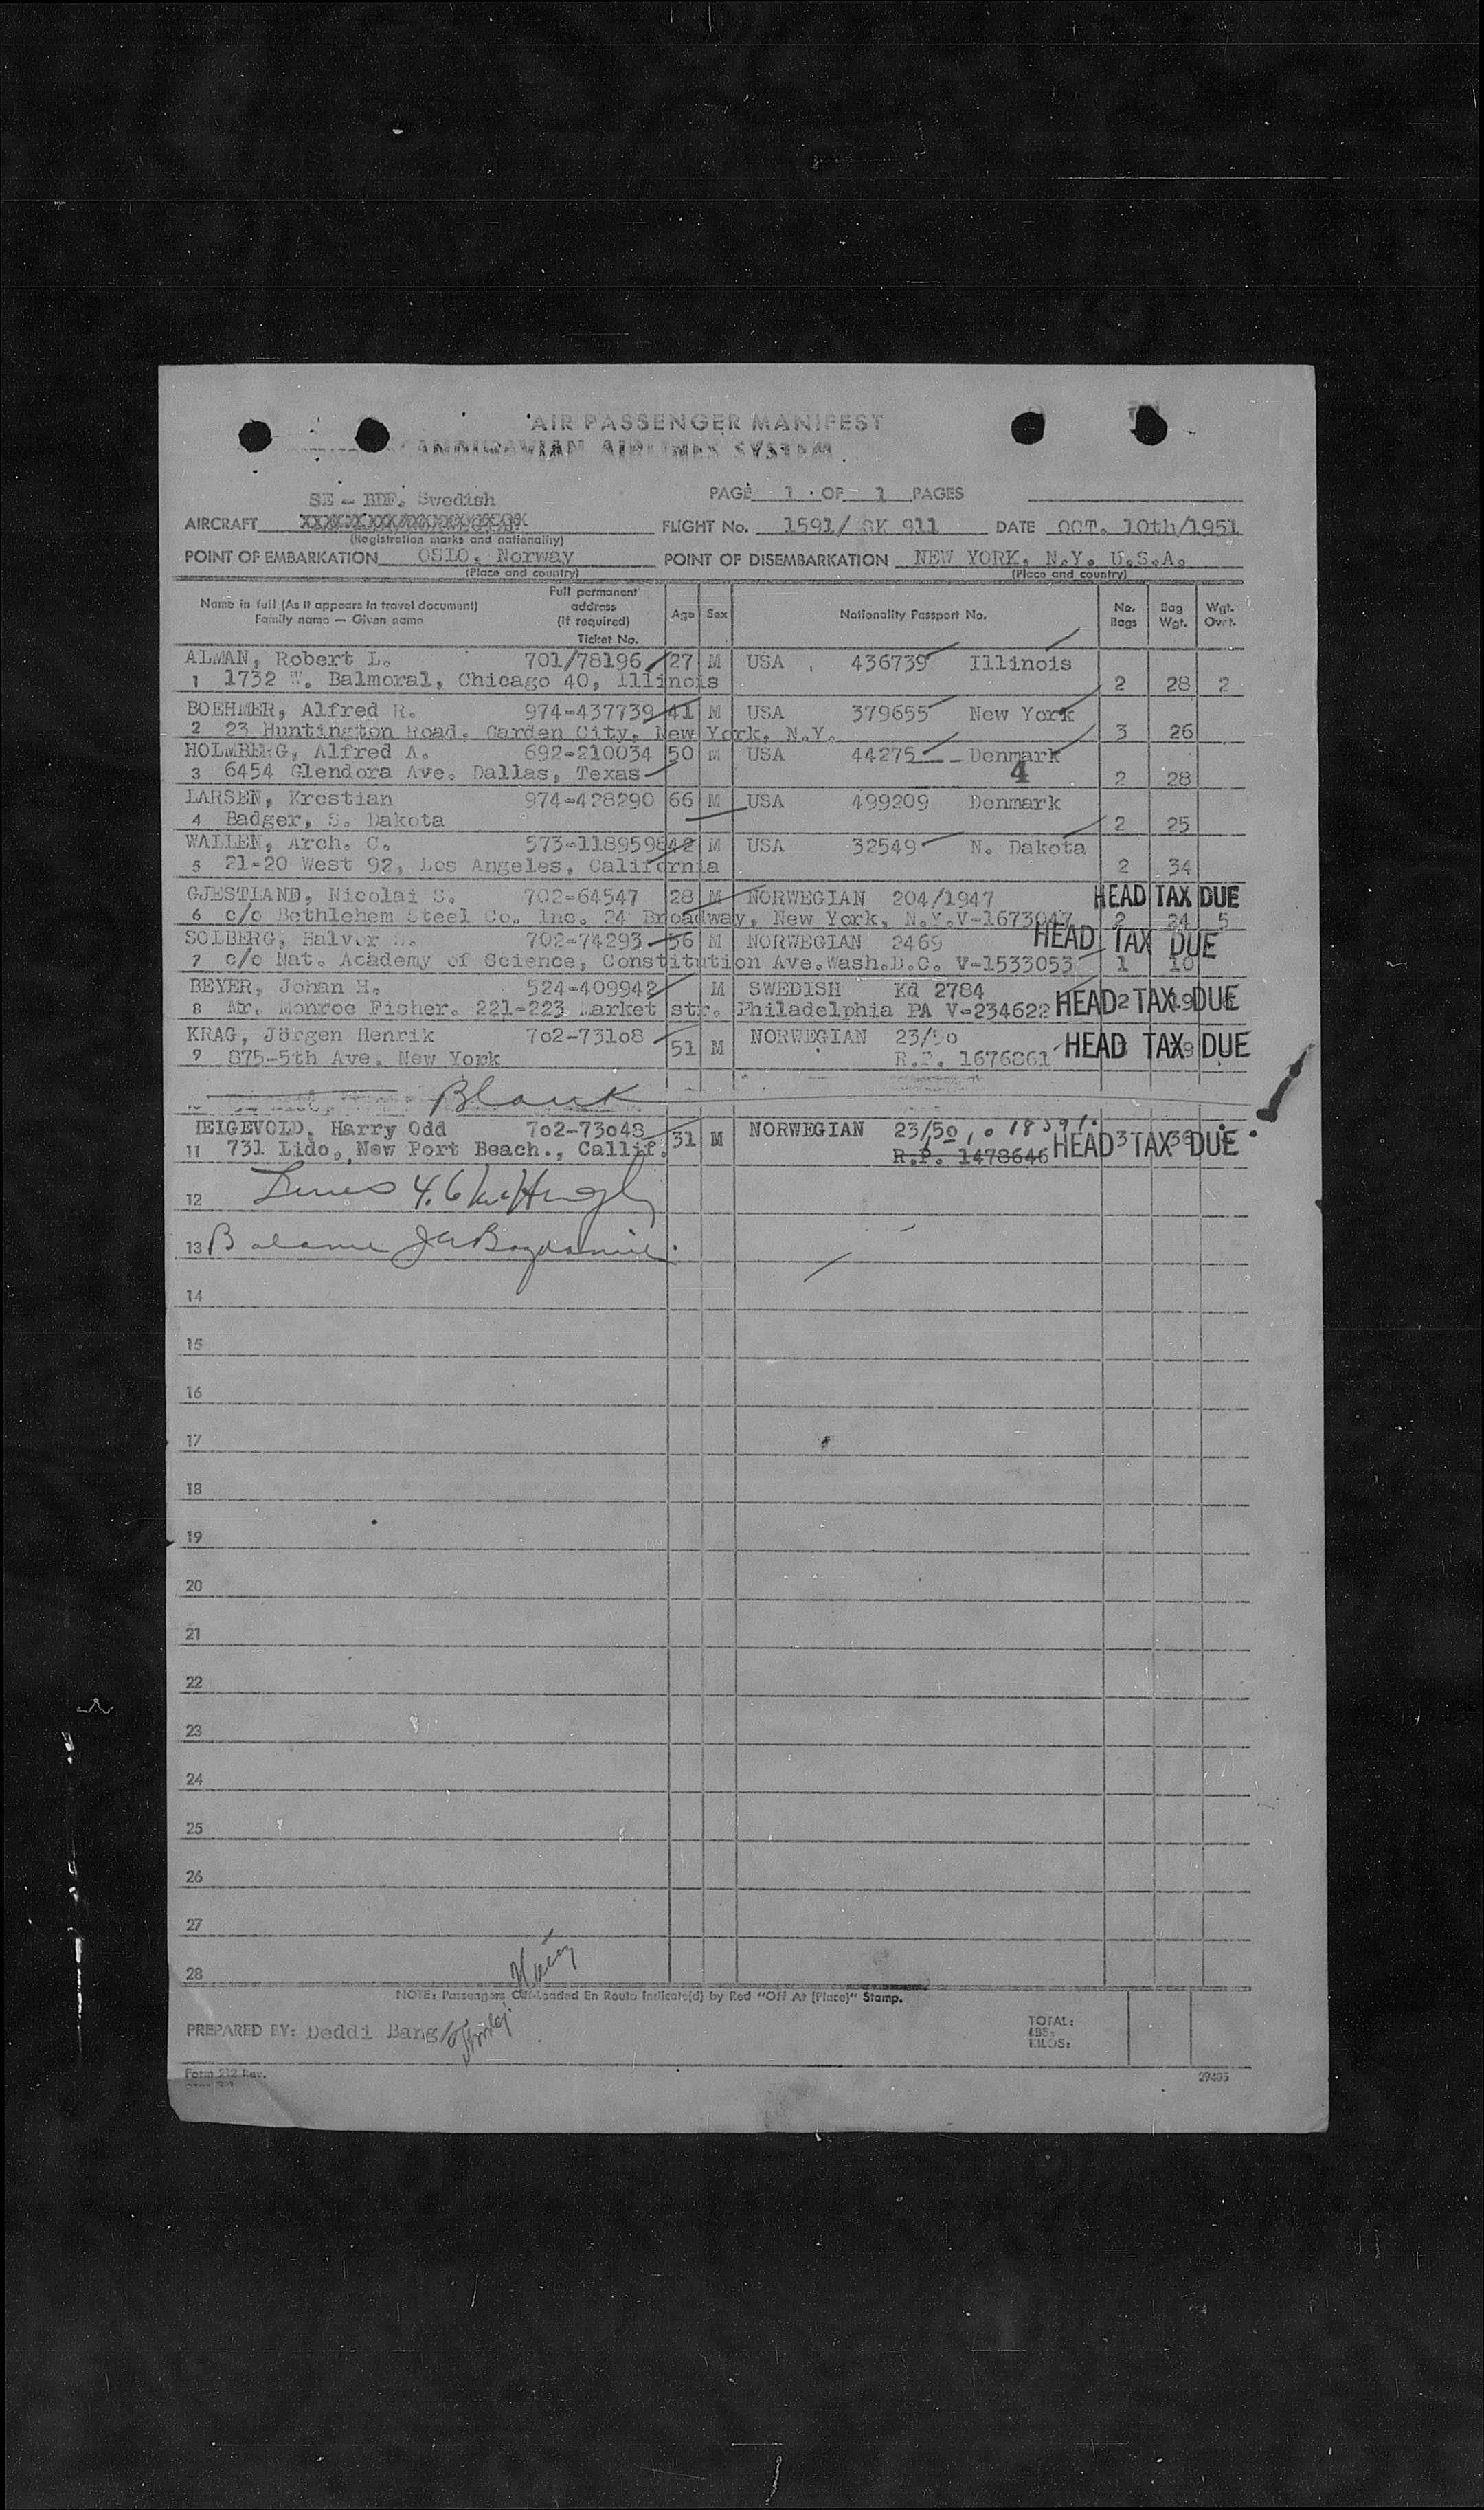 AIR PASSENGER MANIFEST
SCANDINAVIAN AIRLINES SYSTEM
SE - BDF. Swedish
PAGE 1 OF 1 PAGES
AIRCRAFT FLIGHT No. 1591/ SK 911 DATE OCT. 10th/1951
(Registration marks and nationality)
POINT OF EMBARKATION OSLO, Norway POINT OF DISEMBARKATION NEW YORK, N.Y. U.S.A.
(Place and country) (Place and country)
Name in full (As it appears in travel document) Family name — Given name Full permanent address (if required) Ticket No. Age Sex Nationality Passport No. No. Bags Bag Wgt. Wgt. Ovrt.
ALMAN, Robert L. 701/78196 27 M USA 436739 Illinois
1 1732 W. Balmoral, Chicago 40, Illinois 2 28 2
BOEHMER, Alfred R. 974-437739 41 M USA 379655 New York
2 23 Huntington Road, Garden City, New York, N.Y. 3 26
HOLMBERG, Alfred A. 692-210034 50 M USA 44275 Denmark
3 6454 Glendora Ave. Dallas, Texas 4 2 28
LARSEN, Krestian 974-428290 66 M USA 499209 Denmark
4 Badger, S. Dakota 2 25
WALLEN, Arch. C. 573-1189598 42 M USA 32549 N. Dakota
5 21-20 West 92, Los Angeles, California 2 34
GJESTLAND, Nicolai S. 702-64547 28 M NORWEGIAN 204/1947 HEAD TAX DUE
6 c/o Bethlehem Steel Co. Inc. 24 Broadway, New York, N.Y. V-1673047 2 24 5
SOLBERG, Halvor S. 702-74293 56 M NORWEGIAN 2469 HEAD TAX DUE
7 c/o Nat. Academy of Science, Constitution Ave. Wash.D.C. V-1533053 1 10
BEYER, Johan H. 524-409942 M SWEDISH Kd 2784
8 Mr. Monroe Fisher. 221-223 Market str. Philadelphia PA V-234622 HEAD TAX DUE 2 19
KRAG, Jörgen Henrik 702-73108 51 M NORWEGIAN 23/50
9 875-5th Ave. New York R.P. 1676861 HEAD TAX DUE
Blank
HEIGEVOLD, Harry Odd 702-73048 31 M NORWEGIAN 23/50
11 731 Lido, New Port Beach., Callif. R.P. 1478646 HEAD TAX DUE 3
12
13
14
15
16
17
18
19
20
21
22
23
24
25
26
27
28
NOTE: Passengers Off-Loaded En Route Indicate(d) by Red "Off At (Place)" Stamp.
PREPARED BY: Deddi Bang
TOTAL:
LBS:
KILOS:
Form 212 Rev.
29405